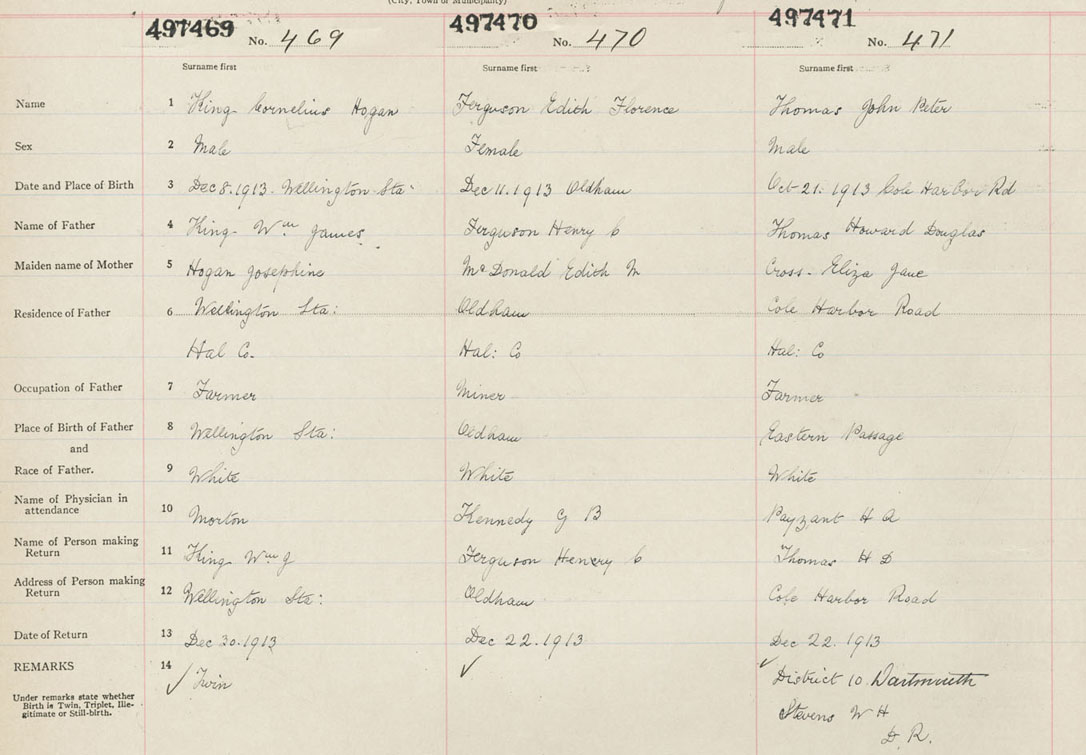 (City, Town or Municipality)
497469 No. 469 497470 No. 470 497471 No. 471
Surname first Surname first Surname first
Name 1 King Cornelius Hogan Ferguson Edith Florence Thomas John Peter
Sex 2 Male Female Male
Date and Place of Birth 3 Dec 8.1913. Wellington Sta: Dec 11.1913 Oldham Oct 21. 1913 Cole Harbor Rd
Name of Father 4 King Wm James Ferguson Henry C Thomas Howard Douglas
Maiden name of Mother 5 Hogan Josephine McDonald Edith M Cross Eliza Jane
Residence of Father 6 Wellington Sta: Oldham Cole Harbor Road
Hal Co. Hal: Co Hal: Co
Occupation of Father 7 Farmer Miner Farmer
Place of Birth of Father 8 Wellington Sta: Oldham Eastern Passage
and
Race of Father. 9 White White White
Name of Physician in
attendance 10 Morton Kennedy G B Payzant H A
Name of Person making
Return 11 King Wm J Ferguson Henery C Thomas H D
Address of Person making
Return 12 Wellington Sta: Oldham Cole Harbor Road
Date of Return 13 Dec 30.1913 Dec 22.1913 Dec 22.1913
REMARKS 14 ✓ Twin ✓ ✓ District 10 Dartmouth
Under remarks state whether
Birth is Twin, Triplet, Ille-
gitimate or Still-birth.
Stevens W H
D. R.